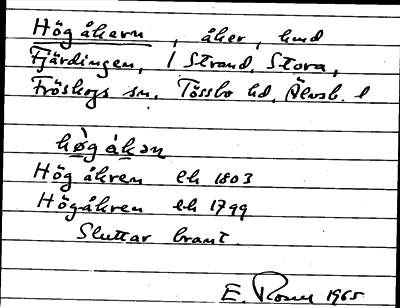 Högåkern, åker, und
Fjärdingen, 1 Strand, Stora,
Fröskogs sn. Tössbo hd, Älvsb. l
hø̀gåkan
Högåkren lh 1803
Högåkren lh 1799
Sluttar brant.
E. Rosen 1965